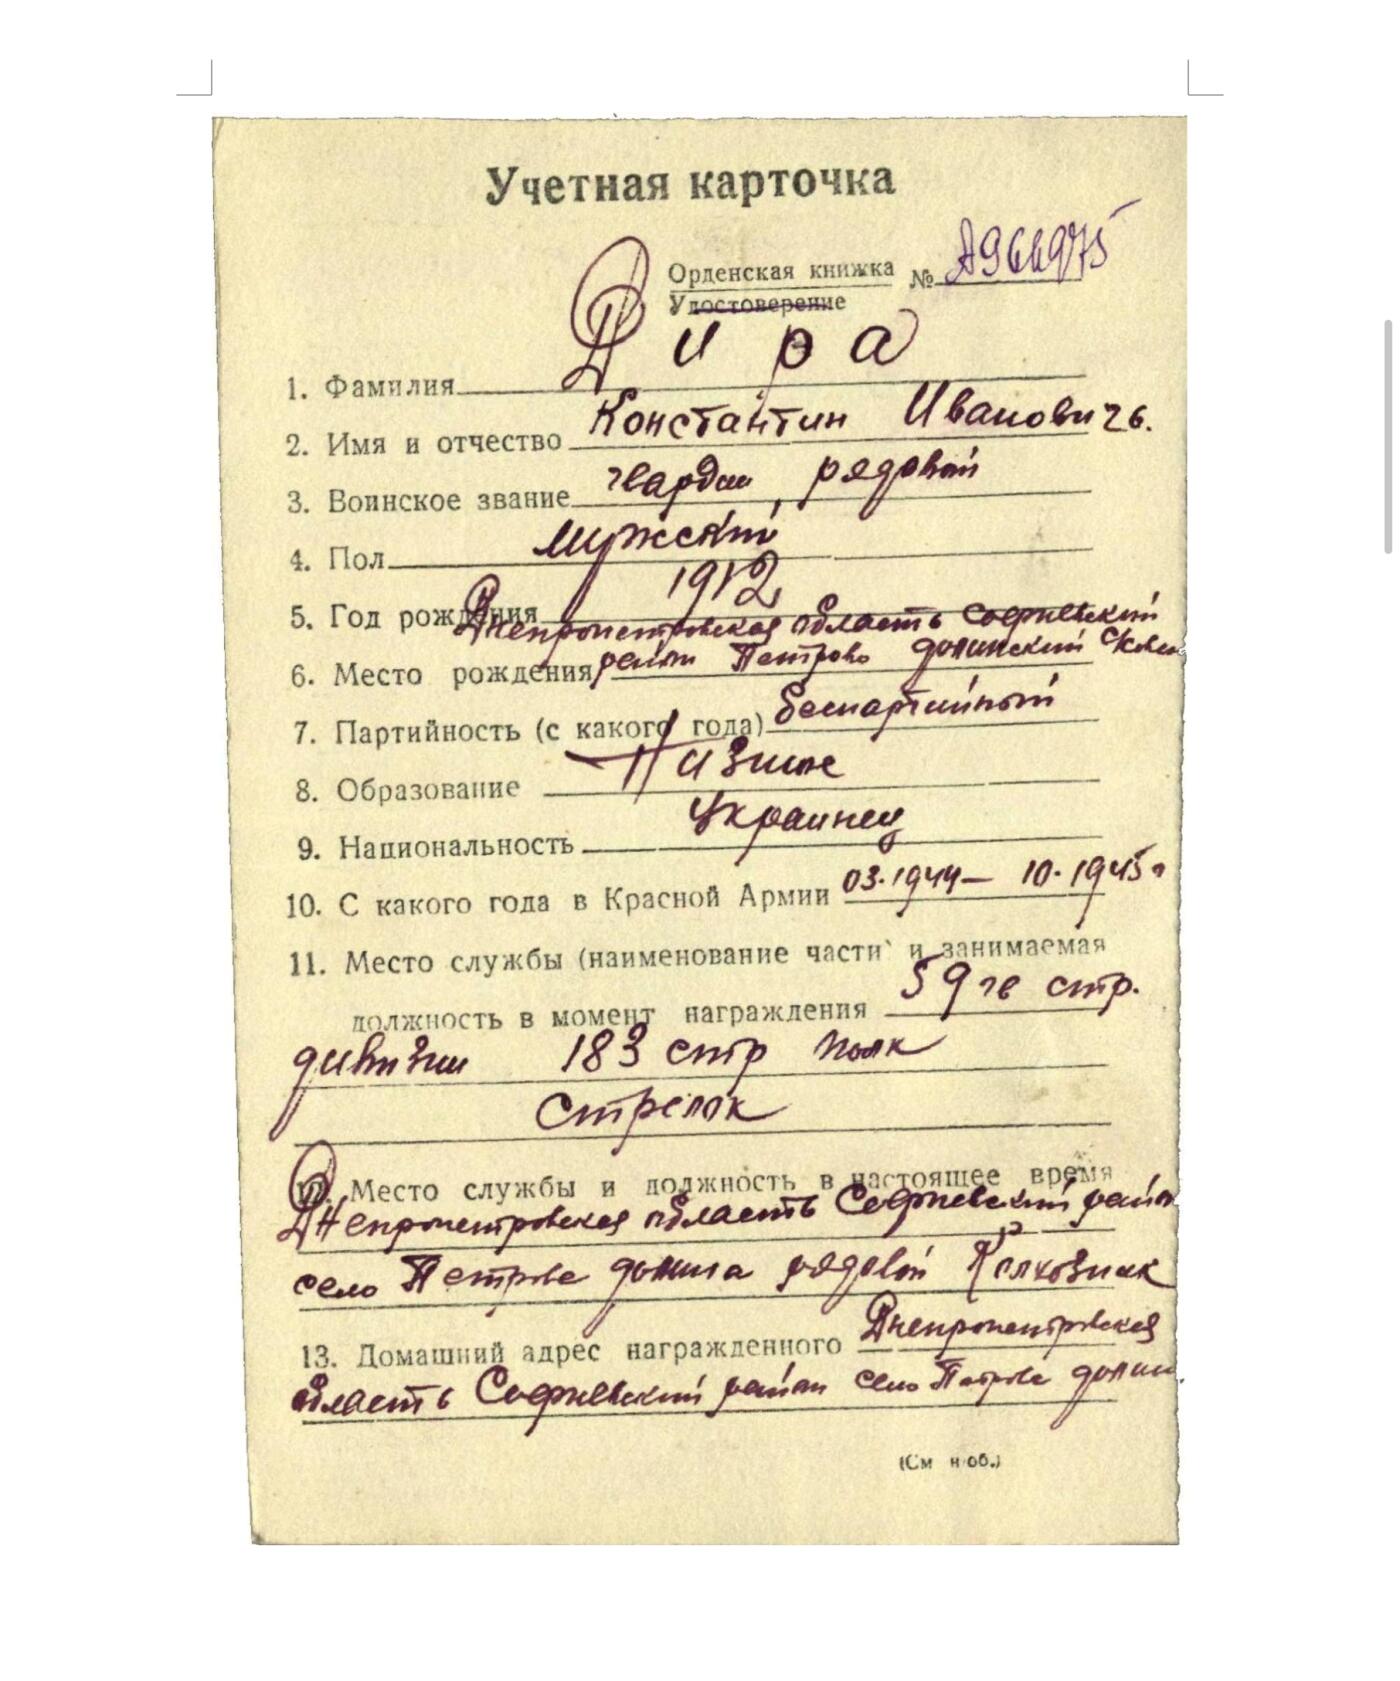 Учетная карточка
Орденская книжка № А966975
Удостоверение
1. Фамилия Дира
2. Имя и отчество Константин Ивановичь.
3. Воинское звание гвардии рядовой
4. Пол мужский
5. Год рождения 1912
Днепропетровская область Софиевский
6. Место рождения район Петрово долинский с/
7. Партийность (с какого года) беспартийный
8. Образование низшое
9. Национальность Украинец
10. С какого года в Красной Армии 03.1944 – 10.1945 г
11. Место службы (наименование части и занимаемая
должность в момент награждения 59 гв стр.
дивизии 183 стр полк
стрелок
12. Место службы и должность в настоящее время
Днепропетровская область Софиевский район
село Петрово долина рядовой Колхозник
13. Домашний адрес награжденного Днепропетровская
область Софиевский район село Петрово долин
(См н об.)